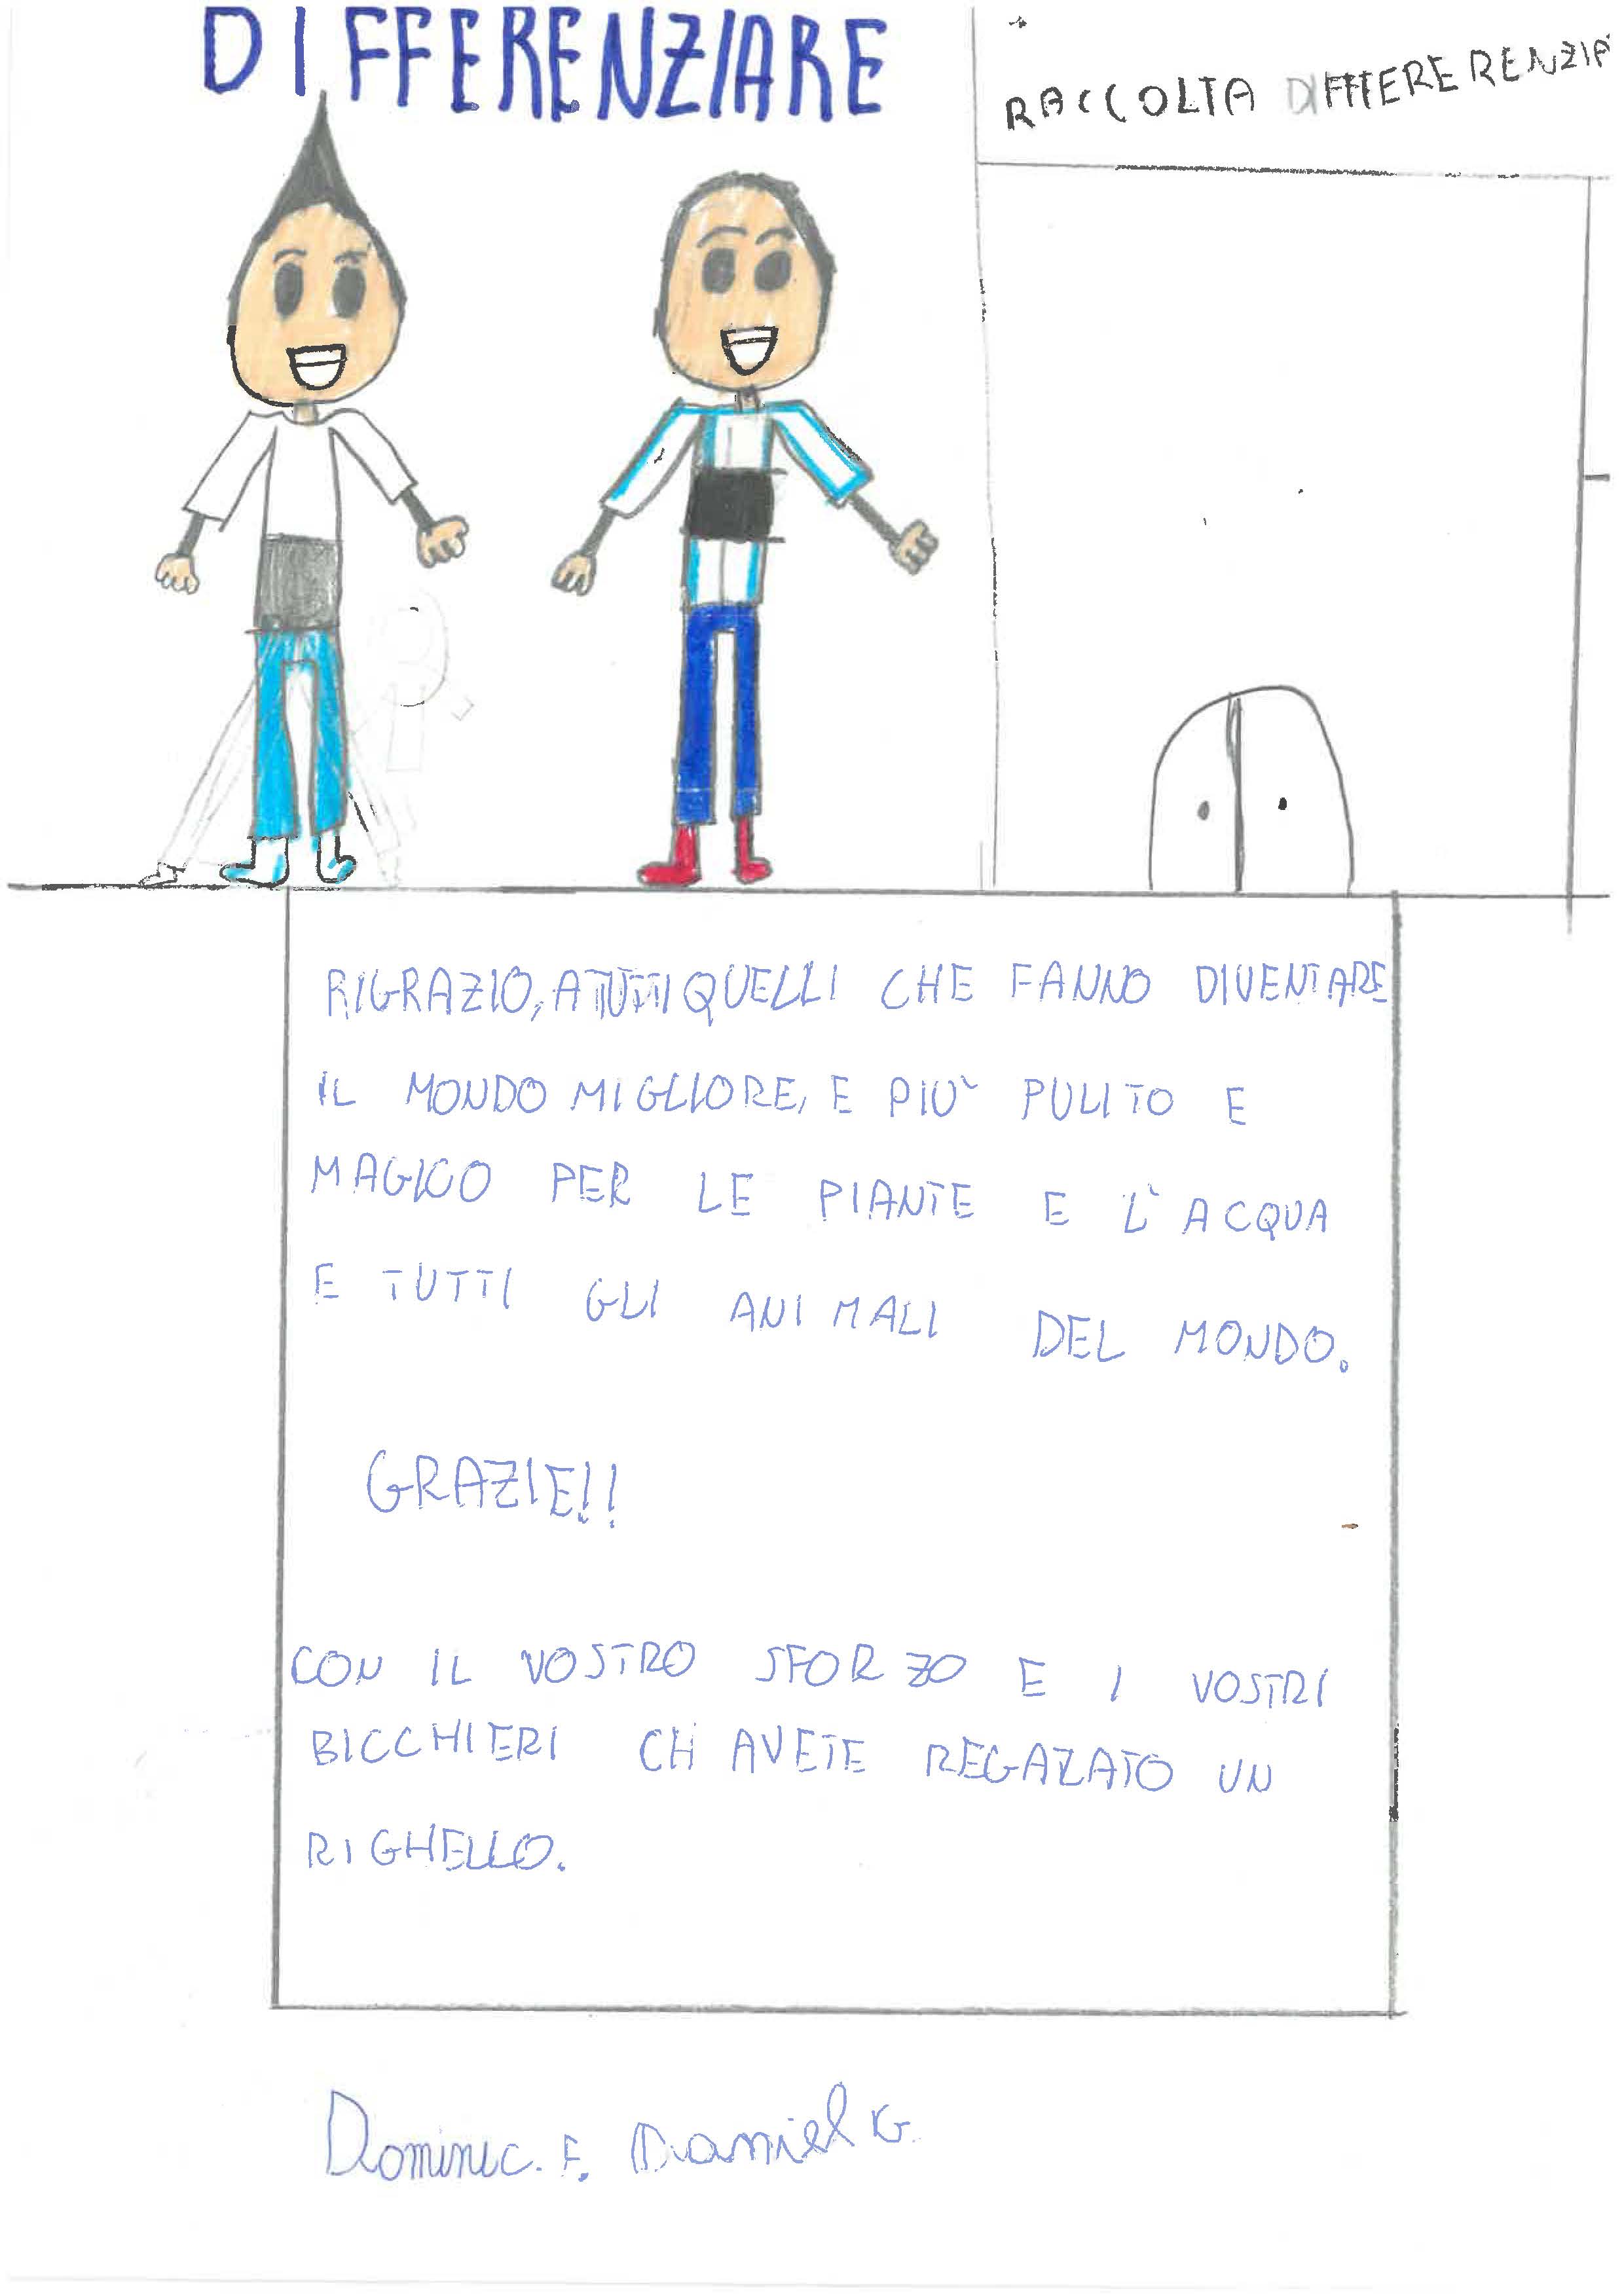 DIFFERENZIARE
RACCOLTA DIFFERERENZIA
RIGRAZIO, A TUTTI QUELLI CHE FANNO DIVENTARE
IL MONDO MIGLIORE, E PIU` PULITO E
MAGICO PER LE PIANTE E L'ACQUA
E TUTTI GLI ANIMALI DEL MONDO.
GRAZIE!!
CON IL VOSTRO SFORZO E I VOSTRI
BICCHIERI CH AVETE REGALATO UN
RIGHELLO.
Dominic. F. Daniel G.